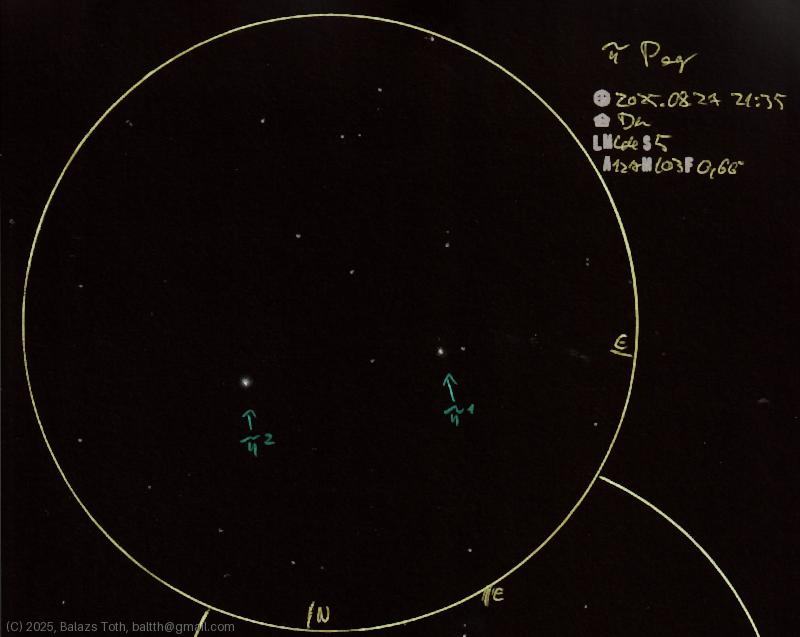 π Peg
2025.08.27 21:35
Du
S 5
A127M103F0,66°
E
π¹
π²
E
N
(C) 2025, Balazs Toth, baltth@gmail.com